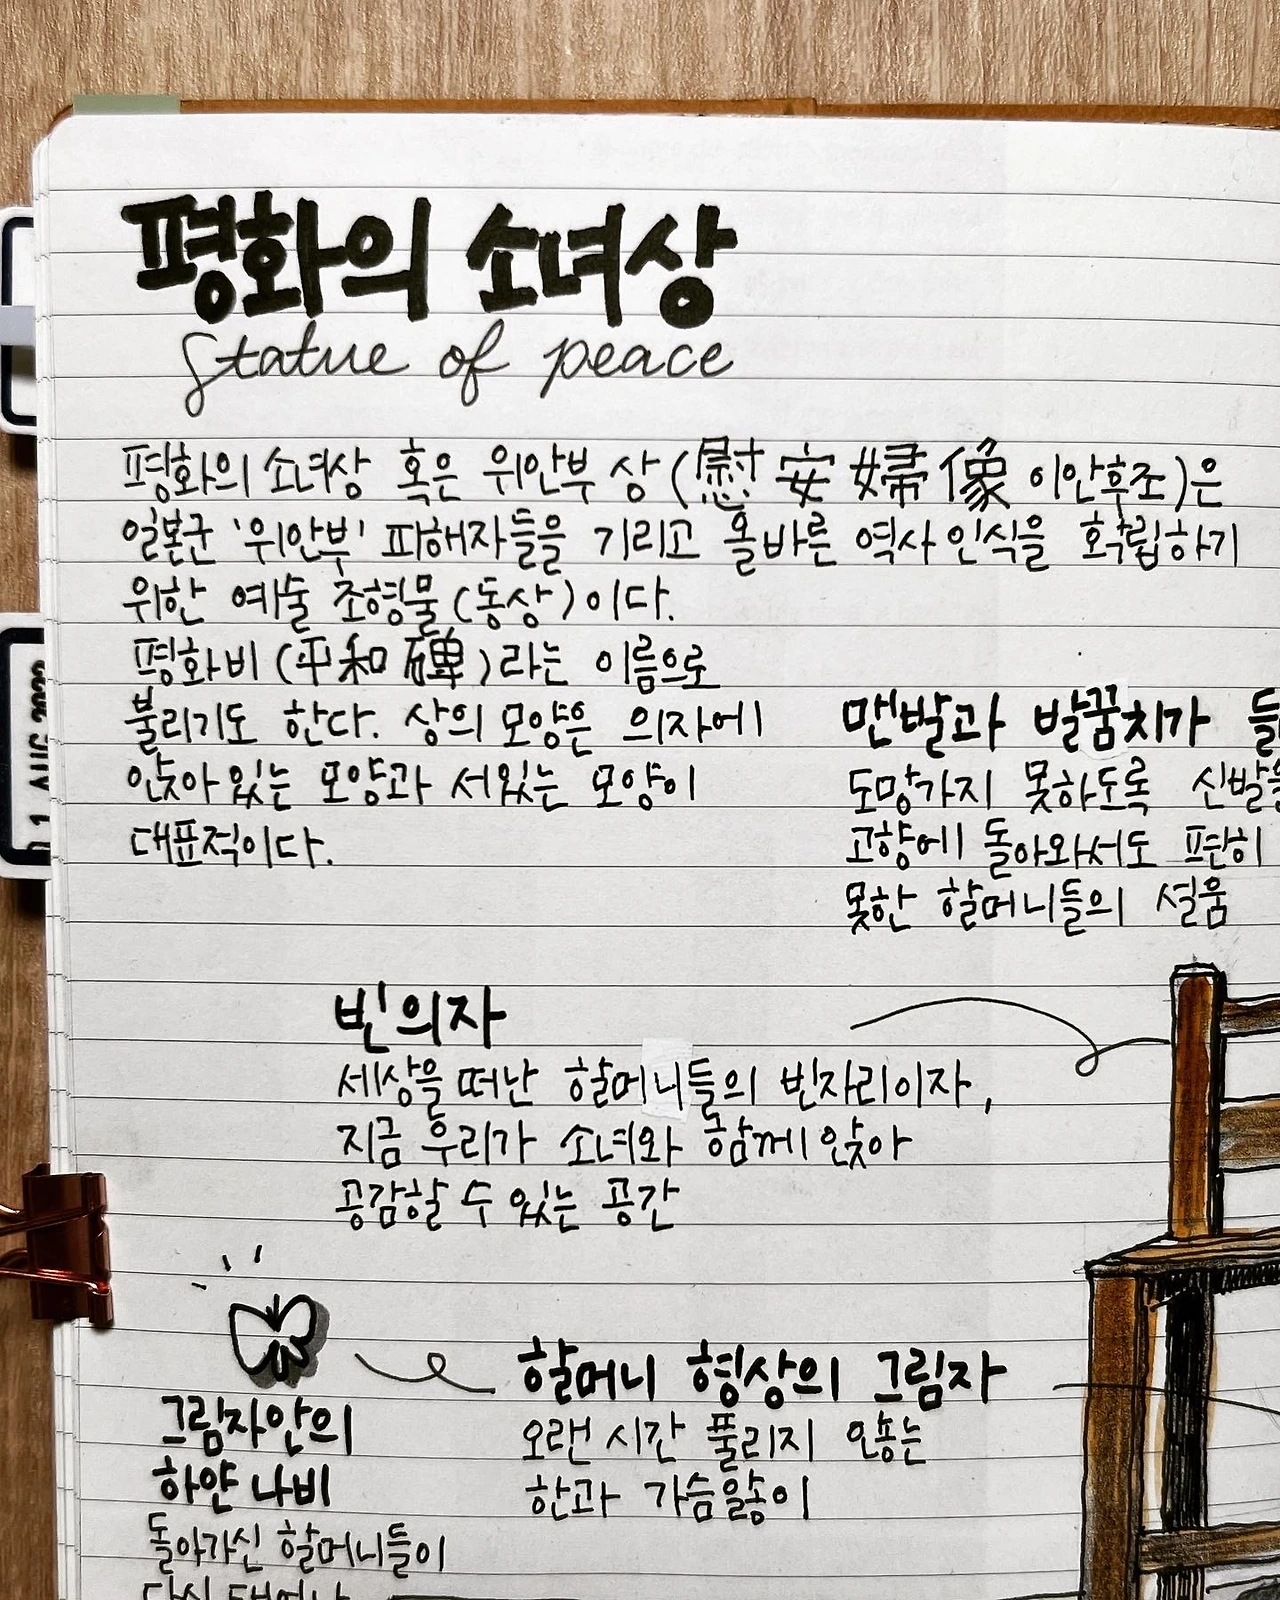 평화의 소녀상
statue of peace
평화의 소녀상 혹은 위안부 상 (慰安婦像 이안후조)은
일본군 '위안부' 피해자들을 기리고 올바른 역사 인식을 확립하기
위한 예술 조형물 (동상) 이다.
평화비 (平和碑) 라는 이름으로
불리기도 한다. 상의 모양은 의자에
앉아 있는 모양과 서있는 모양이
대표적이다.
맨발과 발꿈치가
도망가지 못하도록 신발을
고향에 돌아와서도 편히
못한 할머니들의 설움
빈 의자
세상을 떠난 할머니들의 빈자리이자,
지금 우리가 소녀와 함께 앉아
공감할 수 있는 공간
할머니 형상의 그림자
오랜 시간 풀리지 않는
한과 가슴앓이
그림자 안의
하얀 나비
돌아가신 할머니들이
다시 태어나